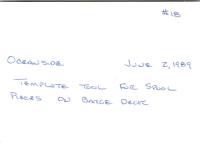 #1B
OCEANSIDE JUNE 2, 1989
TEMPLATE TOOL FOR SPOOL
PIECES ON BARGE DECK